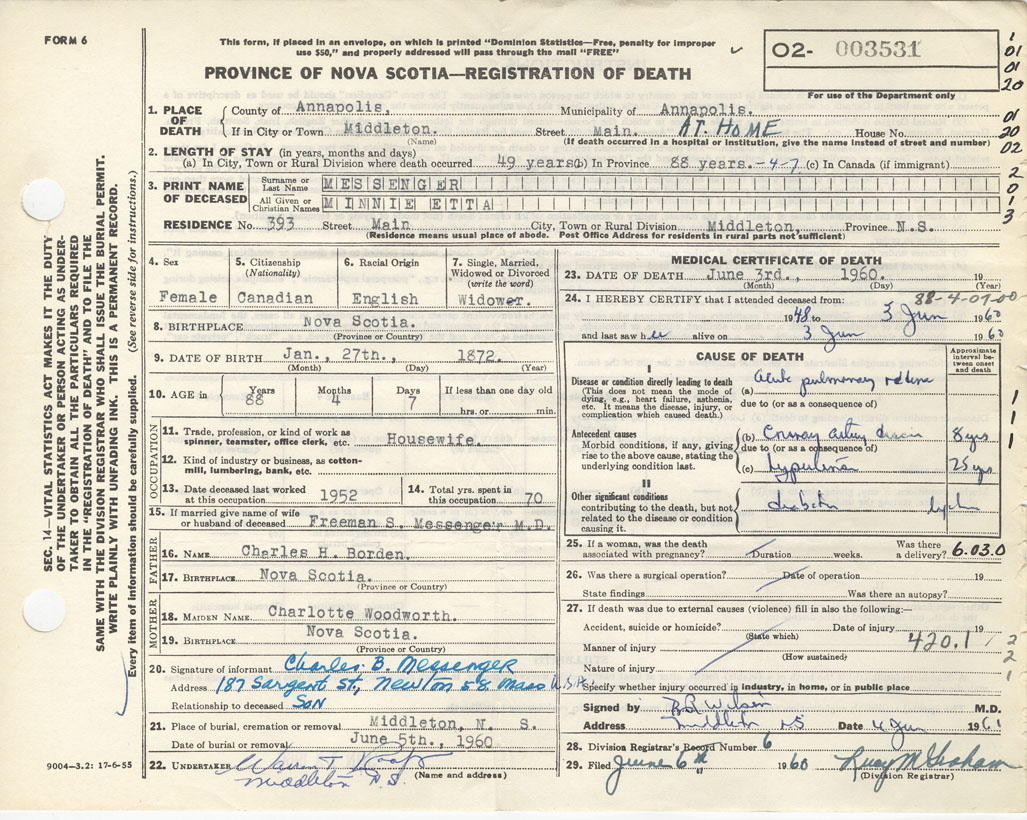 FORM 6
This form, if placed in an envelope, on which is printed "Dominion Statistics—Free, penalty for improper
use $50," and properly addressed will pass through the mail "FREE"
PROVINCE OF NOVA SCOTIA—REGISTRATION OF DEATH
02- 003531
For use of the Department only
1
01
01
20
01
20
02
2
0
1
3
1. PLACE OF DEATH
County of Annapolis, Municipality of Annapolis.
If in City or Town Middleton. Street Main. AT. HOME House No.
(Name) (If death occurred in a hospital or institution, give the name instead of street and number)
2. LENGTH OF STAY (in years, months and days)
(a) In City, Town or Rural Division where death occurred 49 years (b) In Province 88 years. -4-7 (c) In Canada (if immigrant)
3. PRINT NAME OF DECEASED
Surname or Last Name MESSENGER
All Given or Christian Names MINNIE ETTA
RESIDENCE No. 393 Street Main City, Town or Rural Division Middleton, Province N.S.
(Residence means usual place of abode. Post Office Address for residents in rural parts not sufficient)
4. Sex
Female
5. Citizenship
(Nationality)
Canadian
6. Racial Origin
English
7. Single, Married, Widowed or Divorced
(write the word)
Widower.
8. BIRTHPLACE Nova Scotia.
(Province or Country)
9. DATE OF BIRTH Jan., 27th., 1872.
(Month) (Day) (Year)
10. AGE in Years 88 Months 4 Days 7 If less than one day old
hrs. or min.
OCCUPATION
11. Trade, profession, or kind of work as
spinner, teamster, office clerk, etc. Housewife.
12. Kind of industry or business, as cotton-
mill, lumbering, bank, etc.
13. Date deceased last worked at this occupation 1952
14. Total yrs. spent in this occupation 70
15. If married give name of wife
or husband of deceased Freeman S. Messenger M.D.
FATHER
16. NAME Charles H. Borden.
17. BIRTHPLACE Nova Scotia.
(Province or Country)
MOTHER
18. MAIDEN NAME Charlotte Woodworth.
19. BIRTHPLACE Nova Scotia.
(Province or Country)
20. Signature of informant Charles B. Messenger
Address 187 Sargent St., Newton 58 Mass U.S.A.
Relationship to deceased SON
21. Place of burial, cremation or removal Middleton, N. S.
Date of burial or removal June 5th., 1960
22. UNDERTAKER
Middleton N.S. (Name and address)
MEDICAL CERTIFICATE OF DEATH
23. DATE OF DEATH June 3rd., 1960. 19
(Month) (Day) (Year)
24. I HEREBY CERTIFY that I attended deceased from: 88-4-07-00
1948 to 3 Jun 1960
and last saw her alive on 3 Jun 1960
CAUSE OF DEATH
Approximate interval between onset and death
I
Disease or condition directly leading to death
(This does not mean the mode of dying, e.g., heart failure, asthenia, etc. It means the disease, injury, or complication which caused death.)
(a) Acute pulmonary edema
due to (or as a consequence of)
Antecedent causes
Morbid conditions, if any, giving rise to the above cause, stating the underlying condition last.
(b) Coronary artery disease 8 yrs
due to (or as a consequence of)
(c) hypertension 25 yrs
II
Other significant conditions contributing to the death, but not related to the disease or condition causing it.
diabetes
1
1
1
25. If a woman, was the death
associated with pregnancy? Duration weeks. Was there a delivery? 6.030
26. Was there a surgical operation? Date of operation 19
State findings Was there an autopsy?
27. If death was due to external causes (violence) fill in also the following:—
Accident, suicide or homicide? Date of injury 19
(State which)
Manner of injury 420.1
(How sustained)
Nature of injury
2
2
1
Specify whether injury occurred in industry, in home, or in public place
Signed by M.D.
Address Middleton NS Date 4 Jun 1961
28. Division Registrar's Record Number 6
29. Filed June 6th 1960
(Division Registrar)
SEC. 14—VITAL STATISTICS ACT MAKES IT THE DUTY
OF THE UNDERTAKER OR PERSON ACTING AS UNDER-
TAKER TO OBTAIN ALL THE PARTICULARS REQUIRED
IN THE "REGISTRATION OF DEATH" AND TO FILE THE
SAME WITH THE DIVISION REGISTRAR WHO SHALL ISSUE THE BURIAL PERMIT.
WRITE PLAINLY WITH UNFADING INK. THIS IS A PERMANENT RECORD.
Every item of information should be carefully supplied. (See reverse side for instructions.)
9004—3.2: 17-6-55